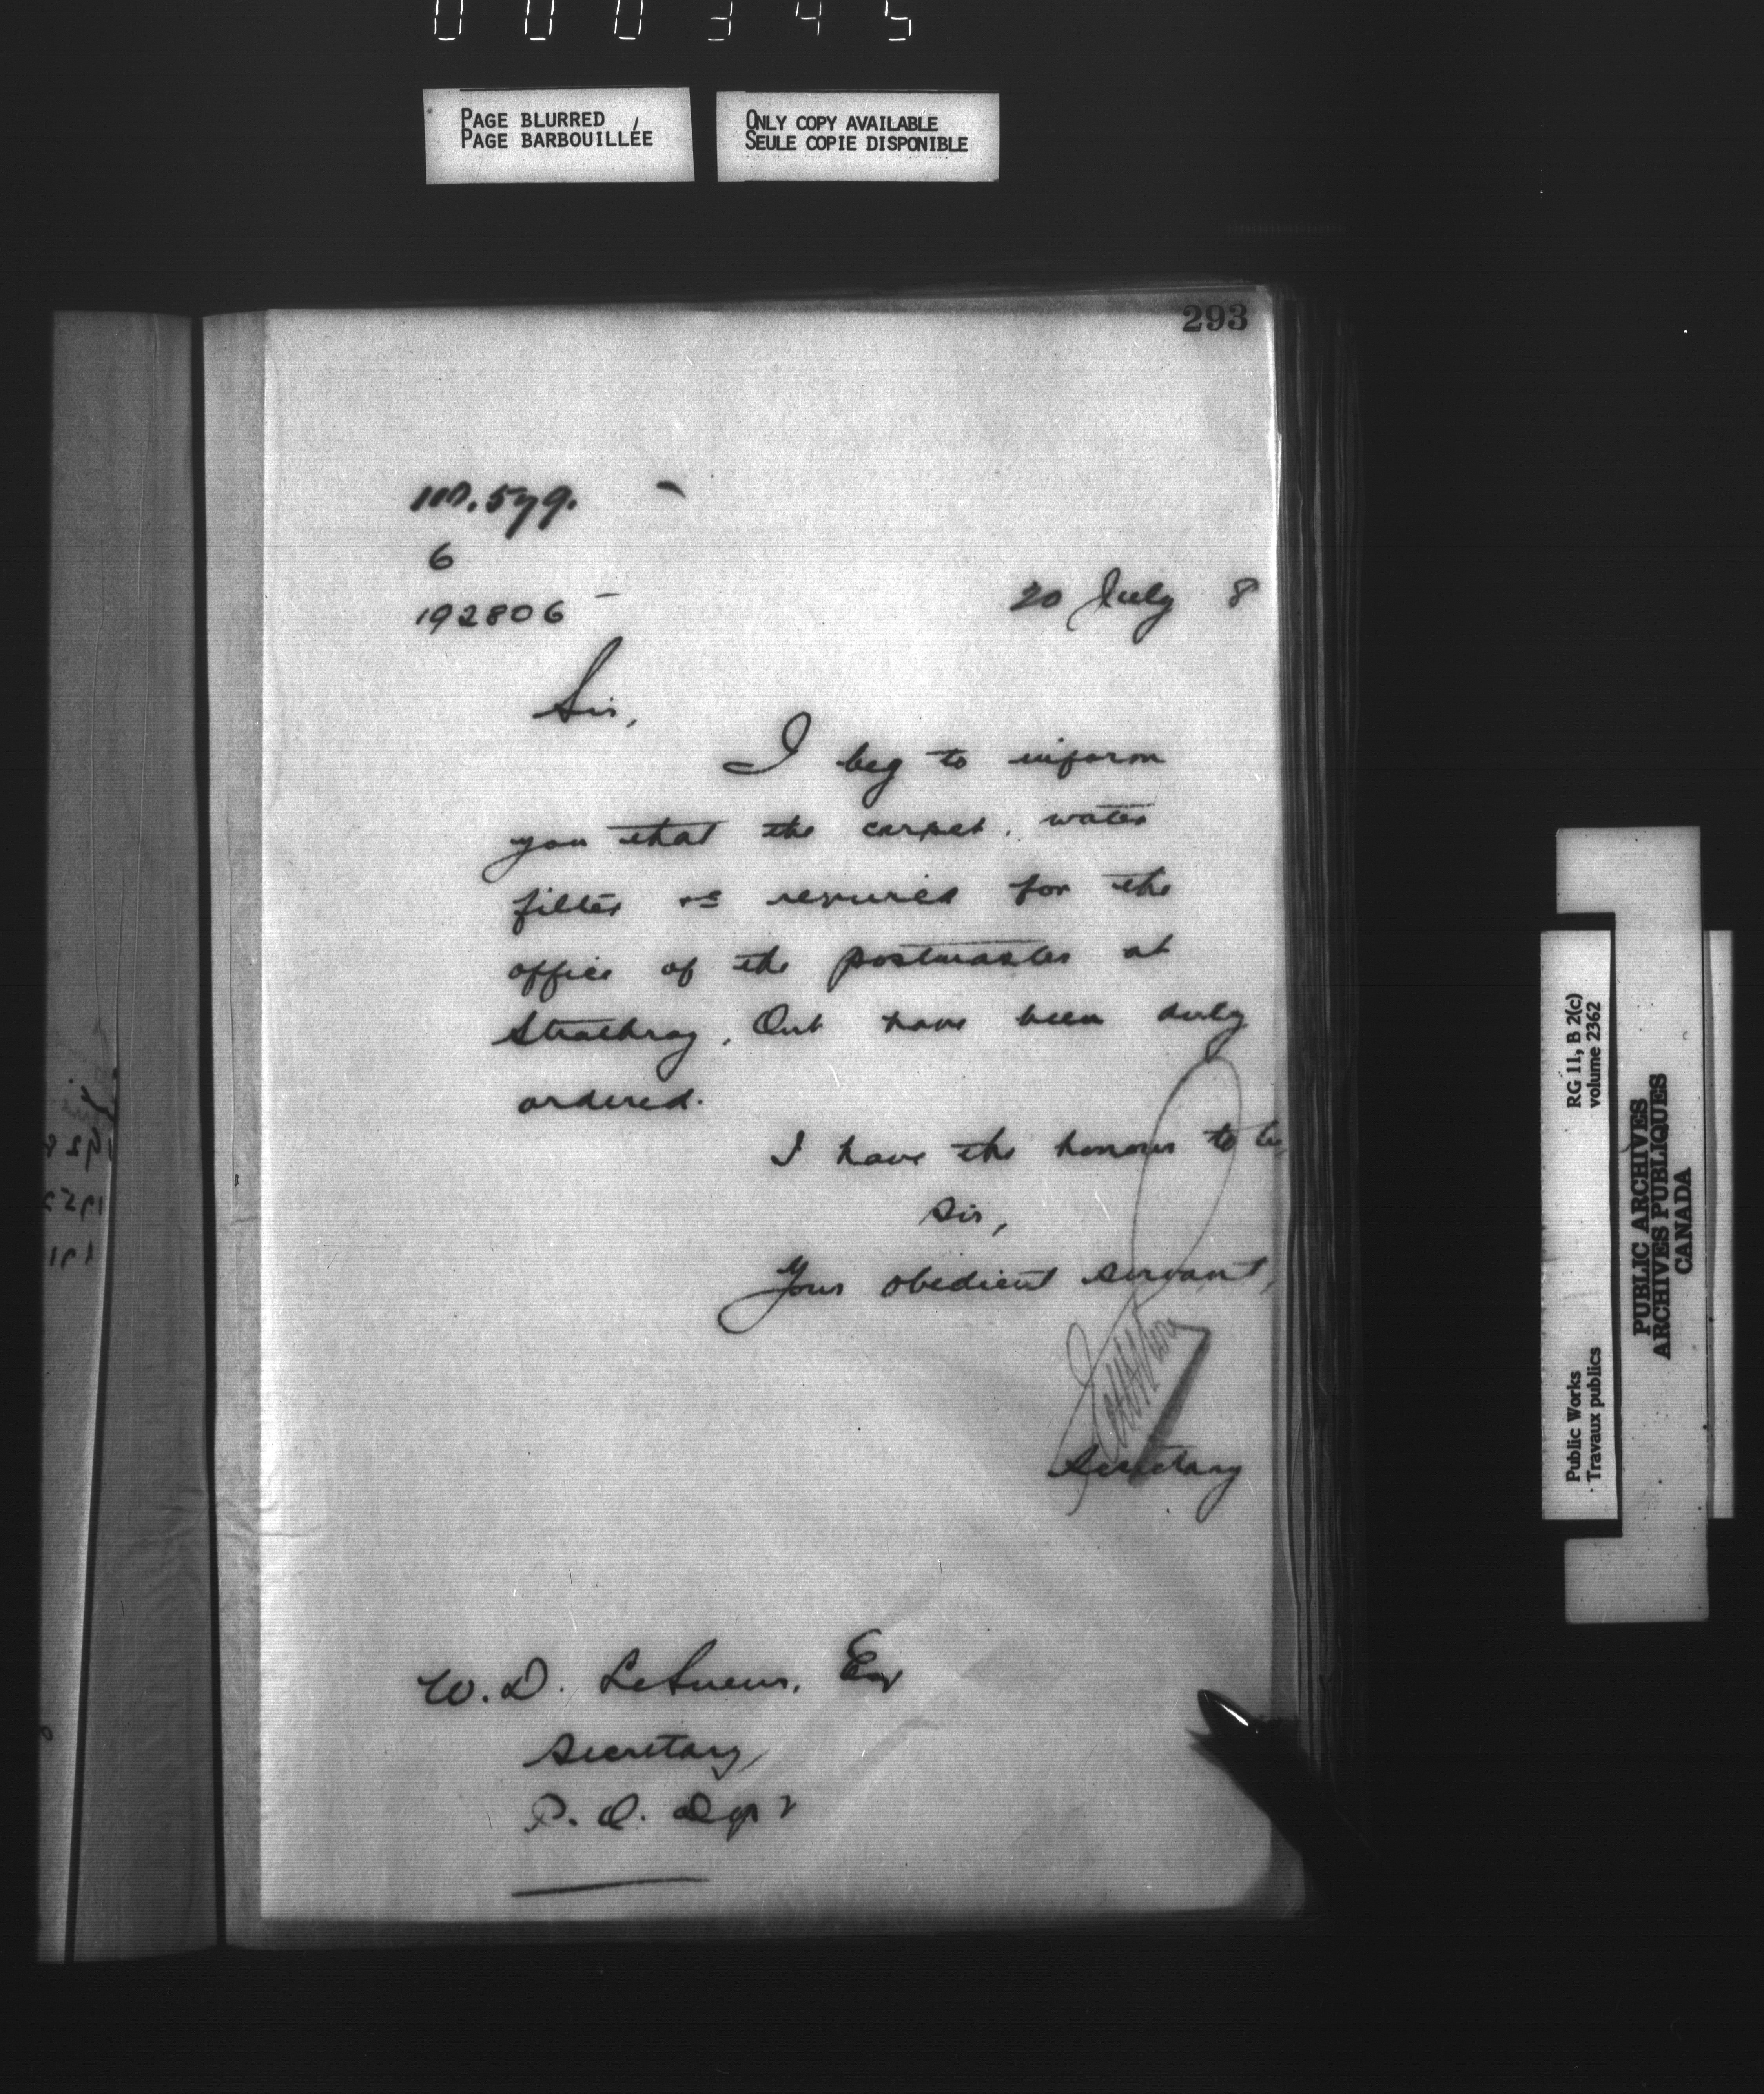 000345
PAGE BLURRED
PAGE BARBOUILLÉE
ONLY COPY AVAILABLE
SEULE COPIE DISPONIBLE
293
6
192806
20 July 8
Sir,
I beg to inform
you that the carpet, water
filter &c required for the
office of the postmaster at
Strathroy, Ont have been duly
ordered.
I have the honour to be,
Sir,
Your obedient servant,
Secretary
W. D. LeSueur, Esq
Secretary,
P. O. Dept
RG 11, B 2(c)
volume 2362
Public Works
Travaux publics
PUBLIC ARCHIVES
ARCHIVES PUBLIQUES
CANADA